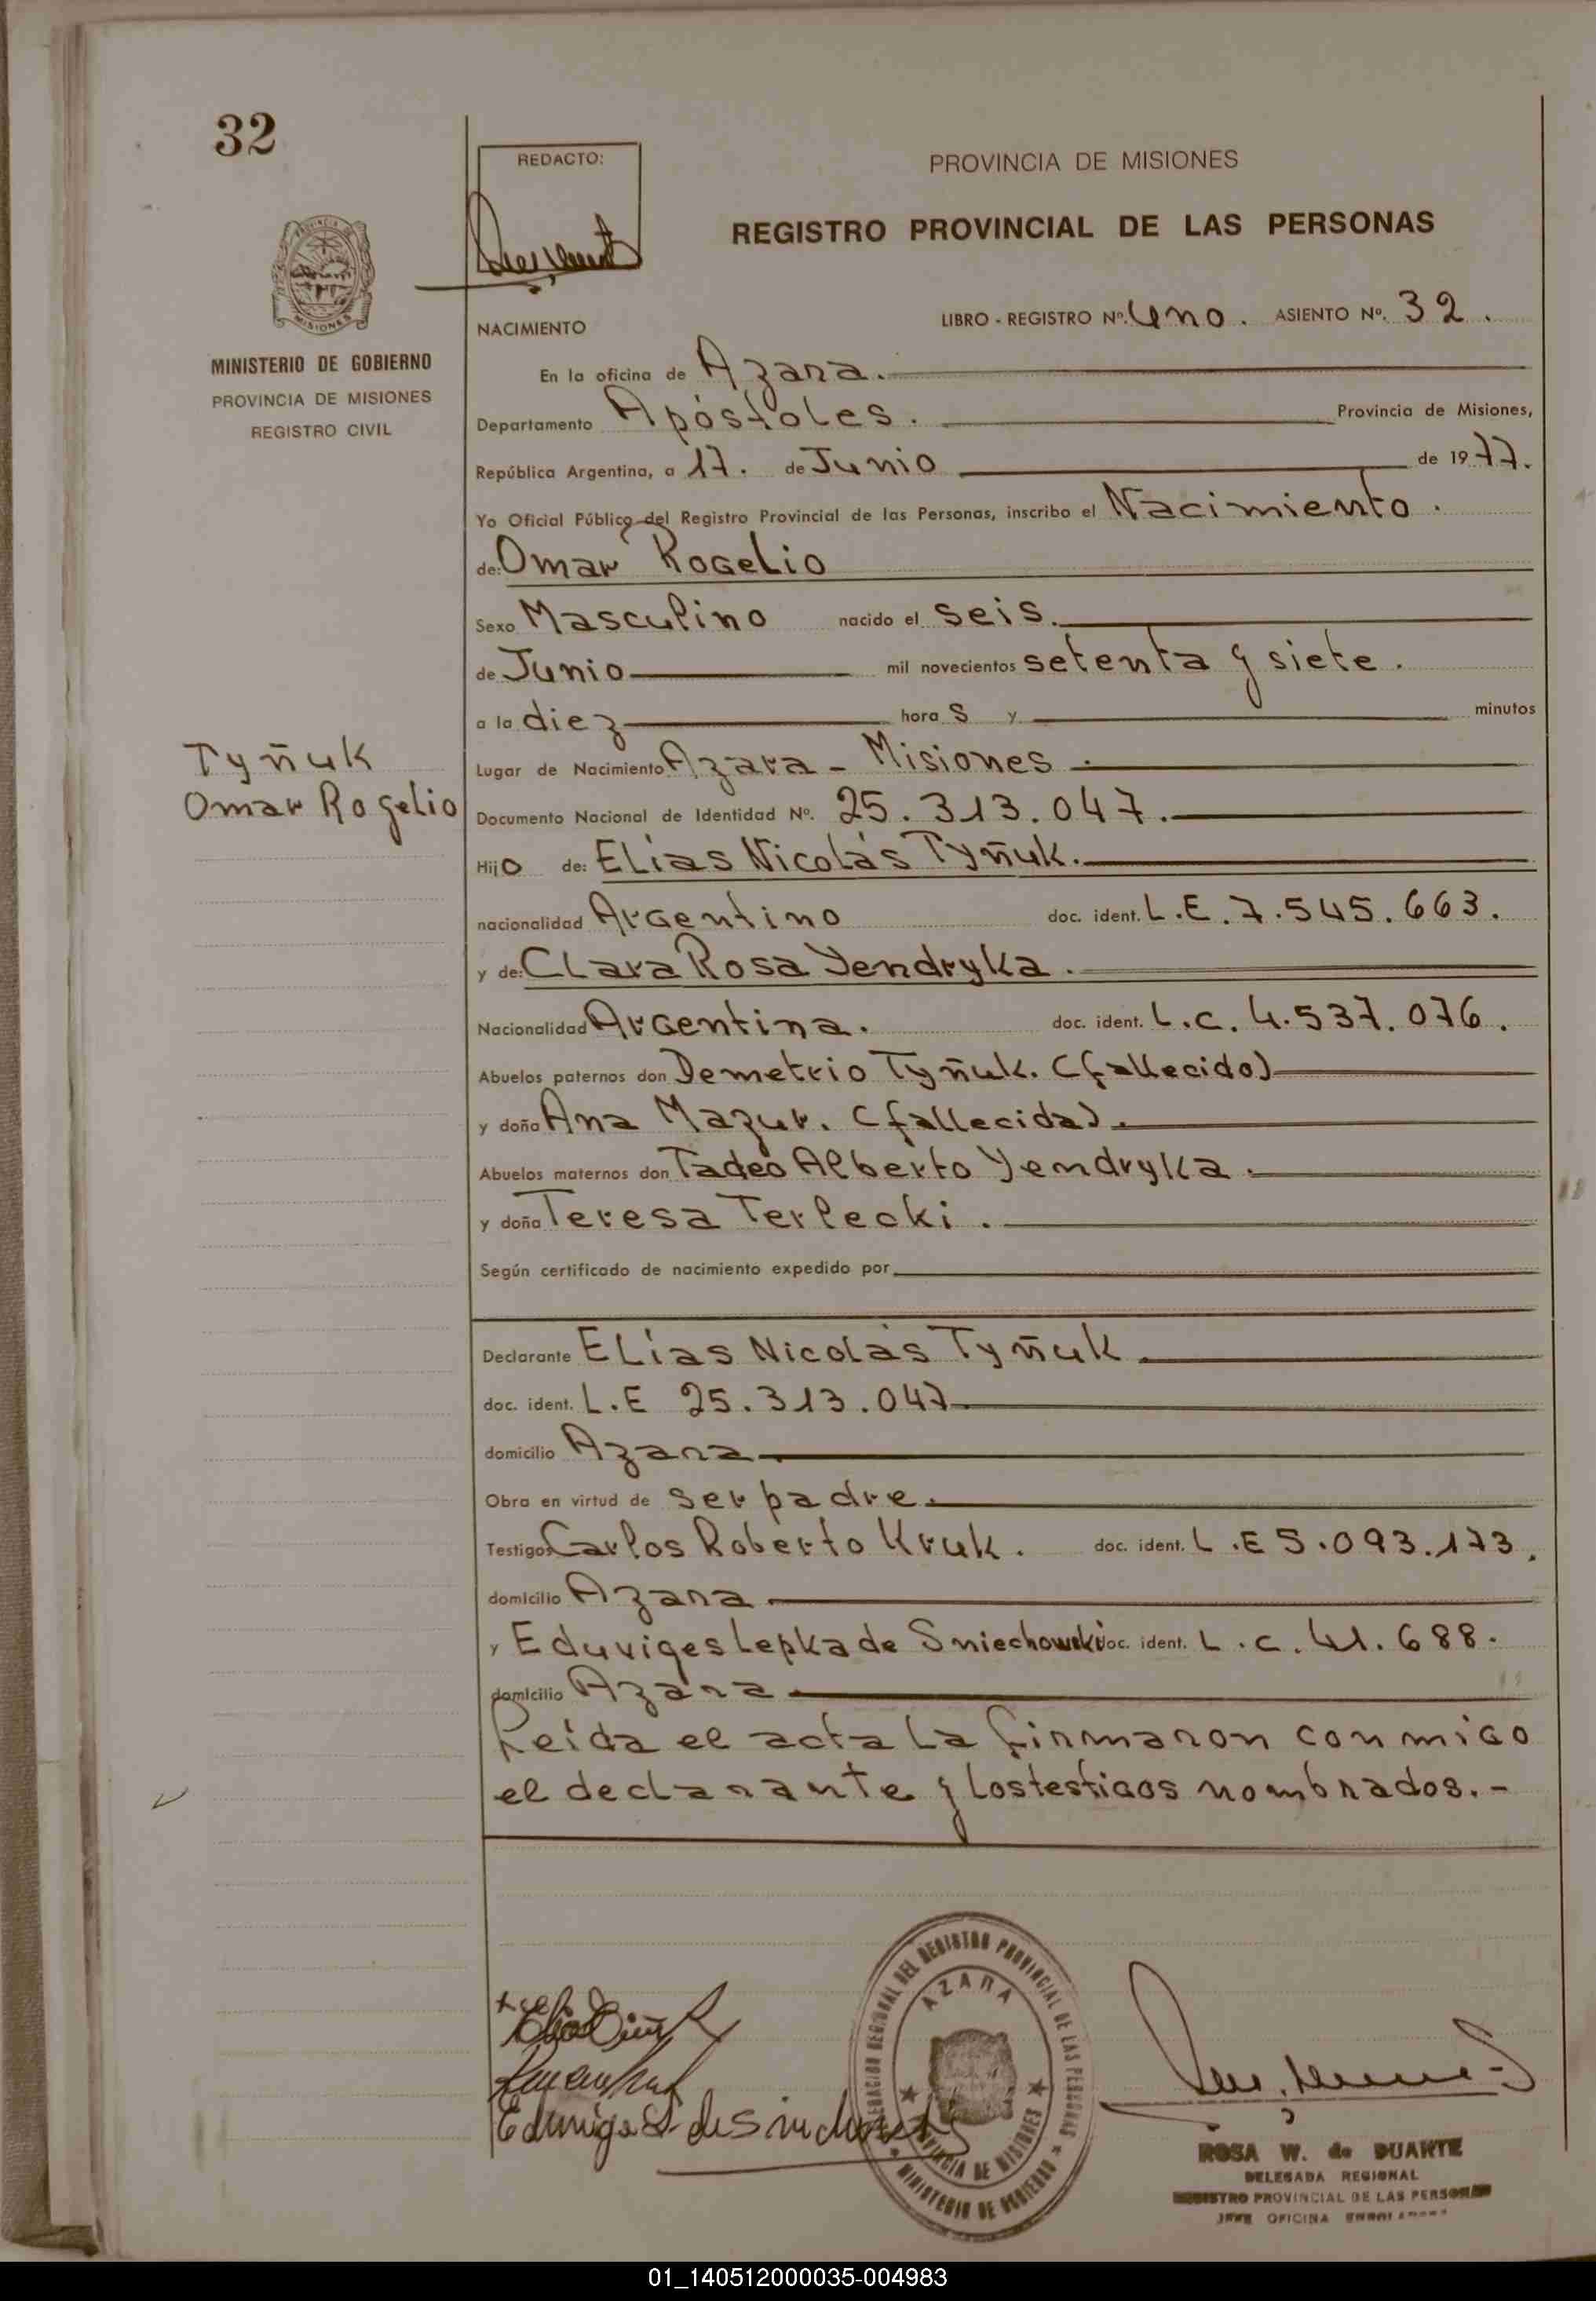 32
REDACTO:
PROVINCIA DE MISIONES
REGISTRO PROVINCIAL DE LAS PERSONAS
MISIONES
MINISTERIO DE GOBIERNO
PROVINCIA DE MISIONES
REGISTRO CIVIL
LIBRO - REGISTRO Nº. Uno. ASIENTO Nº. 32.
NACIMIENTO
En la oficina de Azara.
Departamento Apóstoles. Provincia de Misiones,
República Argentina, a 17. de Junio de 1977.
Yo Oficial Público del Registro Provincial de las Personas, inscribo el Nacimiento.
de: Omar Rogelio
Sexo Masculino nacido el seis.
de Junio mil novecientos setenta y siete.
a la diez hora s y minutos
Tyñuk
Omar Rogelio
Lugar de Nacimiento Azara - Misiones.
Documento Nacional de Identidad Nº. 25.313.047.
Hijo de: Elías Nicolás Tyñuk.
nacionalidad Argentino doc. ident. L.E. 7.545.663.
y de: Clara Rosa Yendryka.
Nacionalidad Argentina. doc. ident. L.C. 4.537.076.
Abuelos paternos don Demetrio Tyñuk. (fallecido)
y doña Ana Mazur. (fallecida).
Abuelos maternos don Tadeo Alberto Yendryka.
y doña Teresa Terlecki.
Según certificado de nacimiento expedido por
Declarante Elías Nicolás Tyñuk
doc. ident. L.E 25.313.047
domicilio Azara
Obra en virtud de ser padre.
Testigos Carlos Roberto Kruk. doc. ident. L.E 5.093.173.
domicilio Azara
y Eduviges Lepka de Sniechowski doc. ident. L.C. 41.688.
domicilio Azara
Leída el acta la firmaron conmigo
el declarante y los testigos nombrados.-
DELEGACION REGIONAL DEL REGISTRO PROVINCIAL DE LAS PERSONAS
AZARA
PROVINCIA DE MISIONES
MINISTERIO DE GOBIERNO
ROSA W. de DUARTE
DELEGADA REGIONAL
REGISTRO PROVINCIAL DE LAS PERSONAS
JEFE OFICINA
01_140512000035-004983